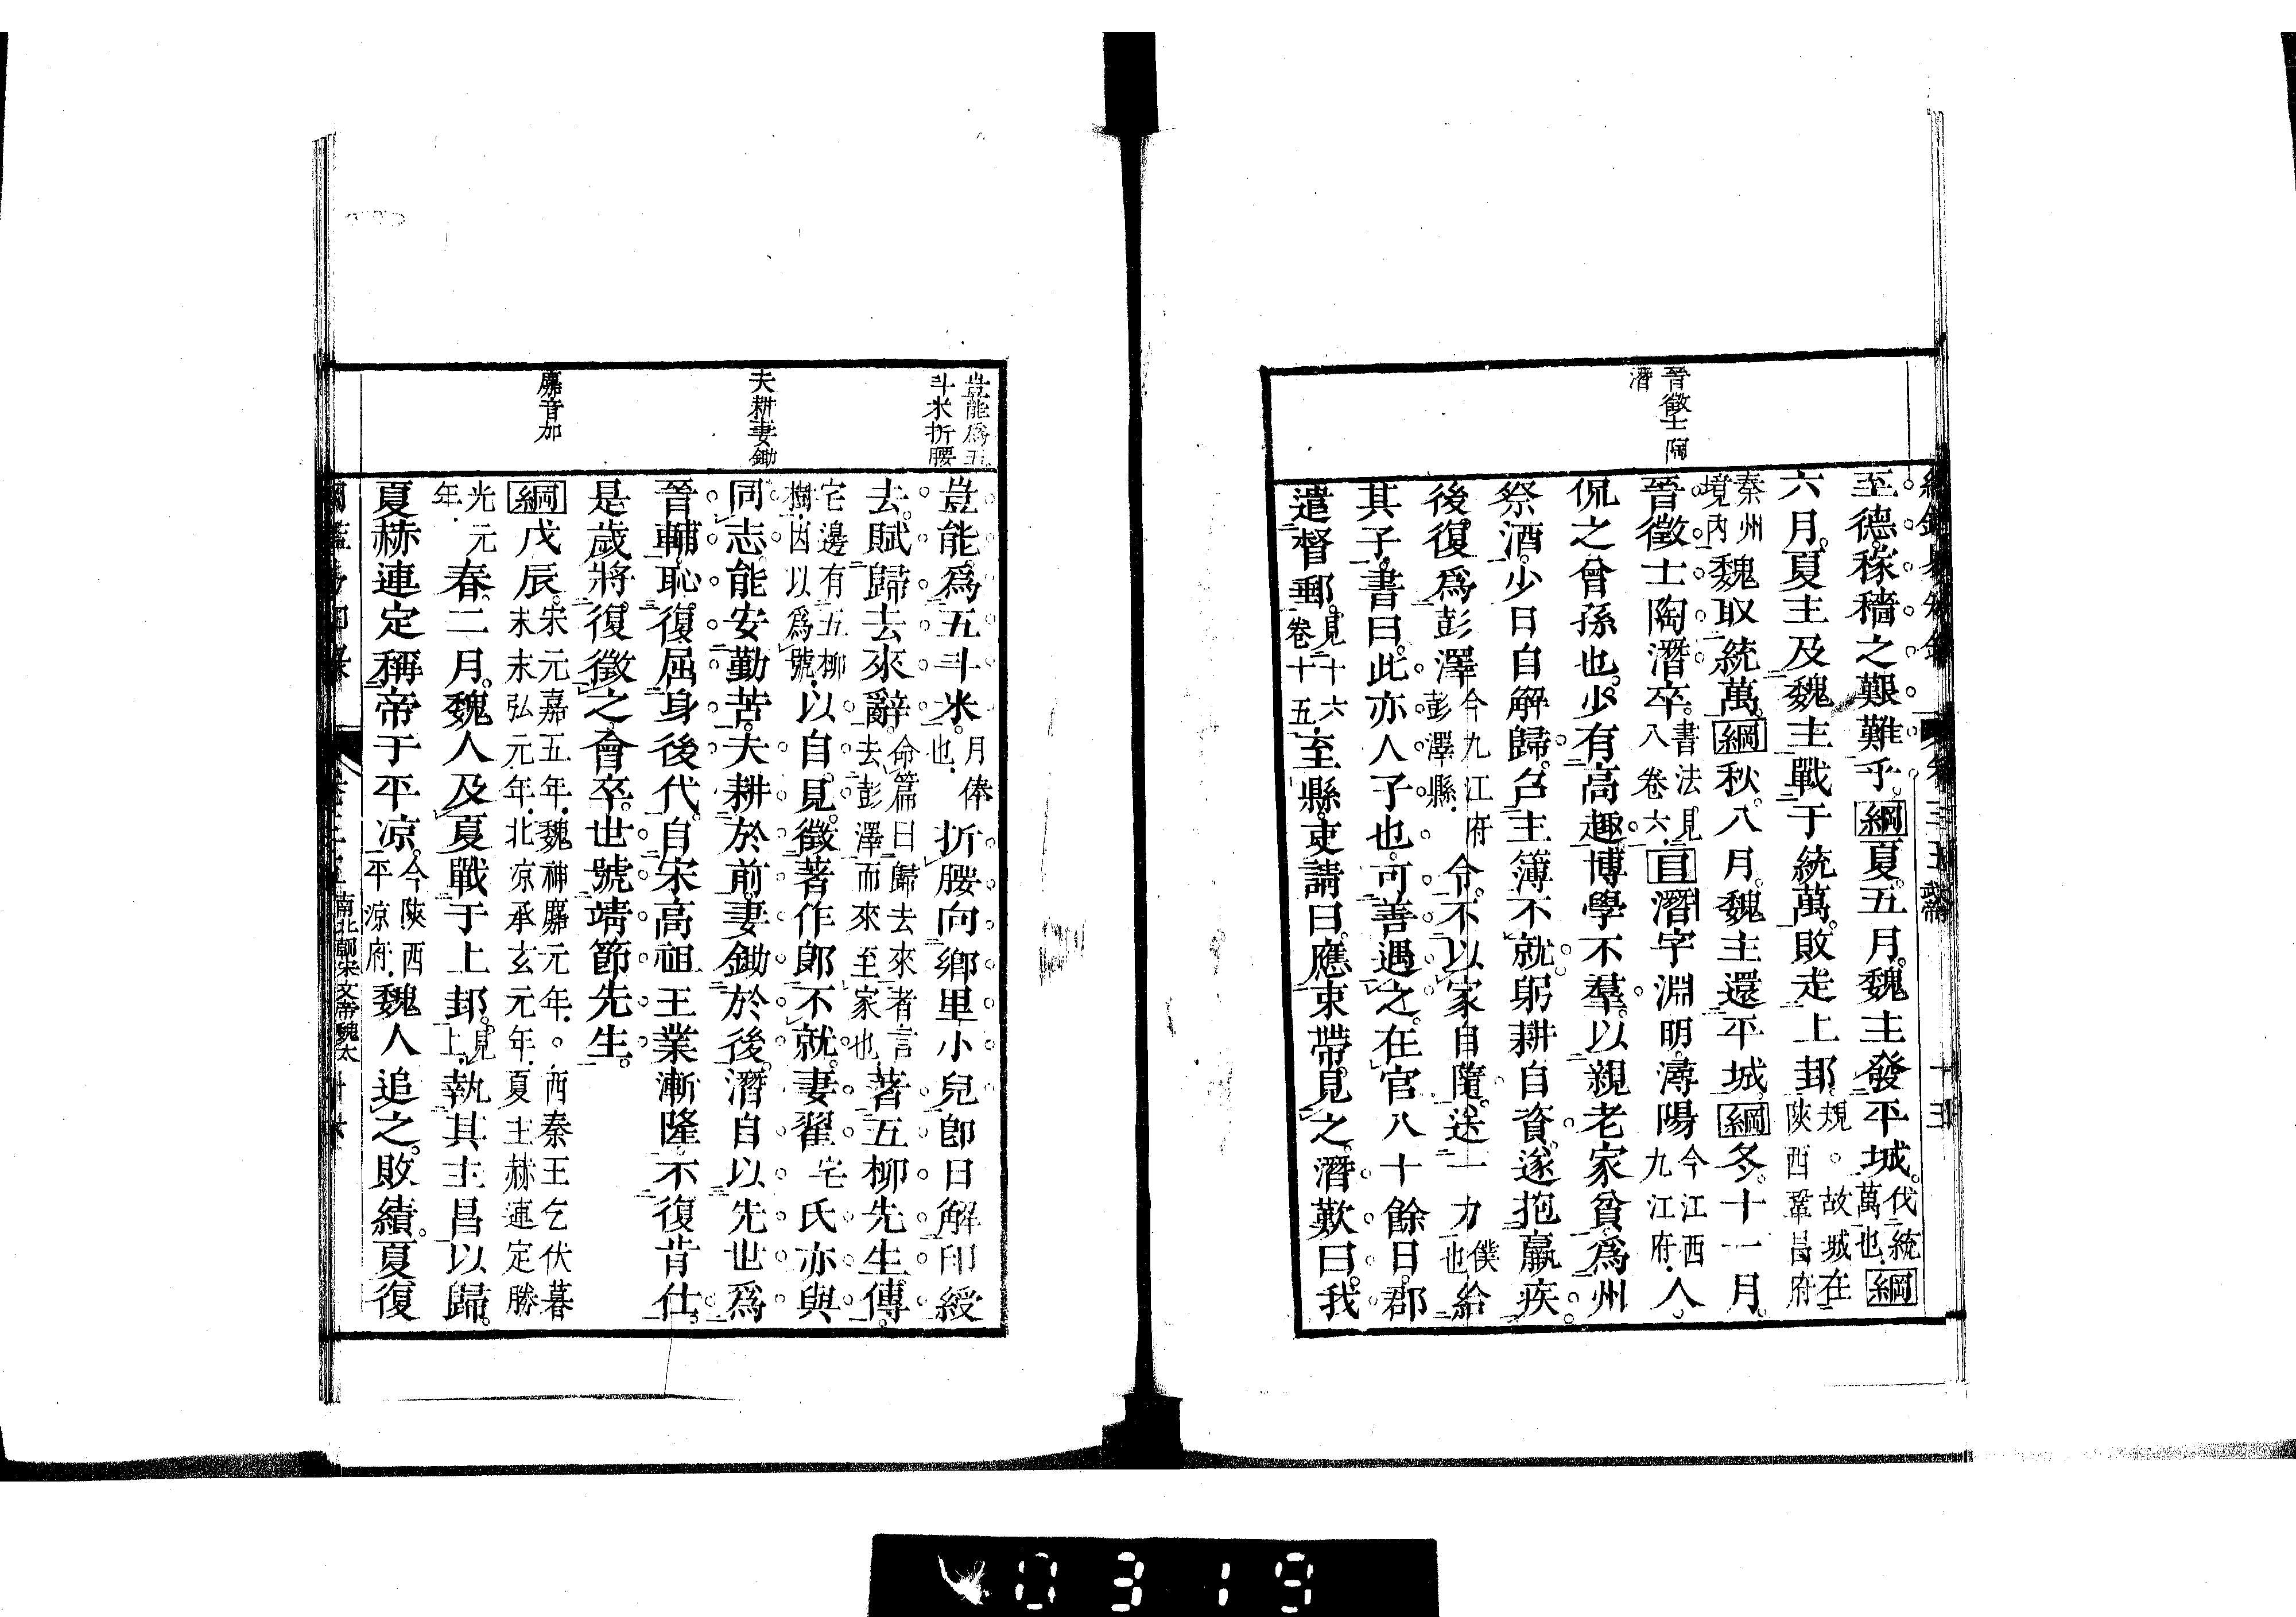 晉徵士陶
潛
至德稼穡之艱難乎綱夏五月魏主發平城伐統萬也綱
六月夏主及魏主戰于統萬敗走上邽規故城在陝西鞏昌府
秦州境内魏取統萬綱秋八月魏主還平城綱冬十一月
晉徵士陶潛卒書法見八卷六目潛字淵明潯陽今江西九江府人
侃之曾孫也少有高趣博學不羣以親老家貧爲州
祭酒少日自解歸召主簿不就躬耕自資遂抱羸疾
後復爲彭澤今九江府彭澤縣令不以家自隨送一力僕也給
其子書曰此亦人子也可善遇之在官八十餘日郡
遣督郵見十六卷十五至縣吏請曰應束帶見之潛歎曰我
豈能爲五
斗米折腰
夫耕妻鋤
麚音加
豈能爲五斗米月俸也折腰向鄉里小兒卽日解印綬
去賦歸去來辭命篇曰歸去來者言去彭澤而來至家也著五柳先生傳
宅邊有五柳樹因以爲號以自見徵著作郎不就妻翟宅氏亦與
同志能安勤苦夫耕於前妻鋤於後潛自以先世爲
晉輔恥復屈身後代自宋高祖王業漸隆不復肯仕
是歲將復徵之會卒世號靖節先生
綱戊辰宋元嘉五年魏神麚元年西秦王乞伏暮末末弘元年北涼承玄元年夏主赫連定勝
光元年春二月魏人及夏戰于上邽見上執其主昌以歸
夏赫連定稱帝于平凉今陝西平涼府魏人追之敗績夏復
南北朝宋文帝魏太
0319